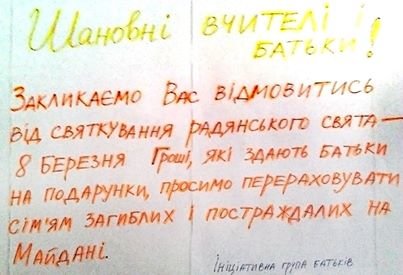 Шановні вчителі і
батьки!
Закликаємо Вас відмовитись
від святкування радянського свята —
8 березня Гроші, які здають батьки
на подарунки, просимо перераховувати
сім'ям загиблих і постраждалих на
Майдані.
Ініціативна група батьків